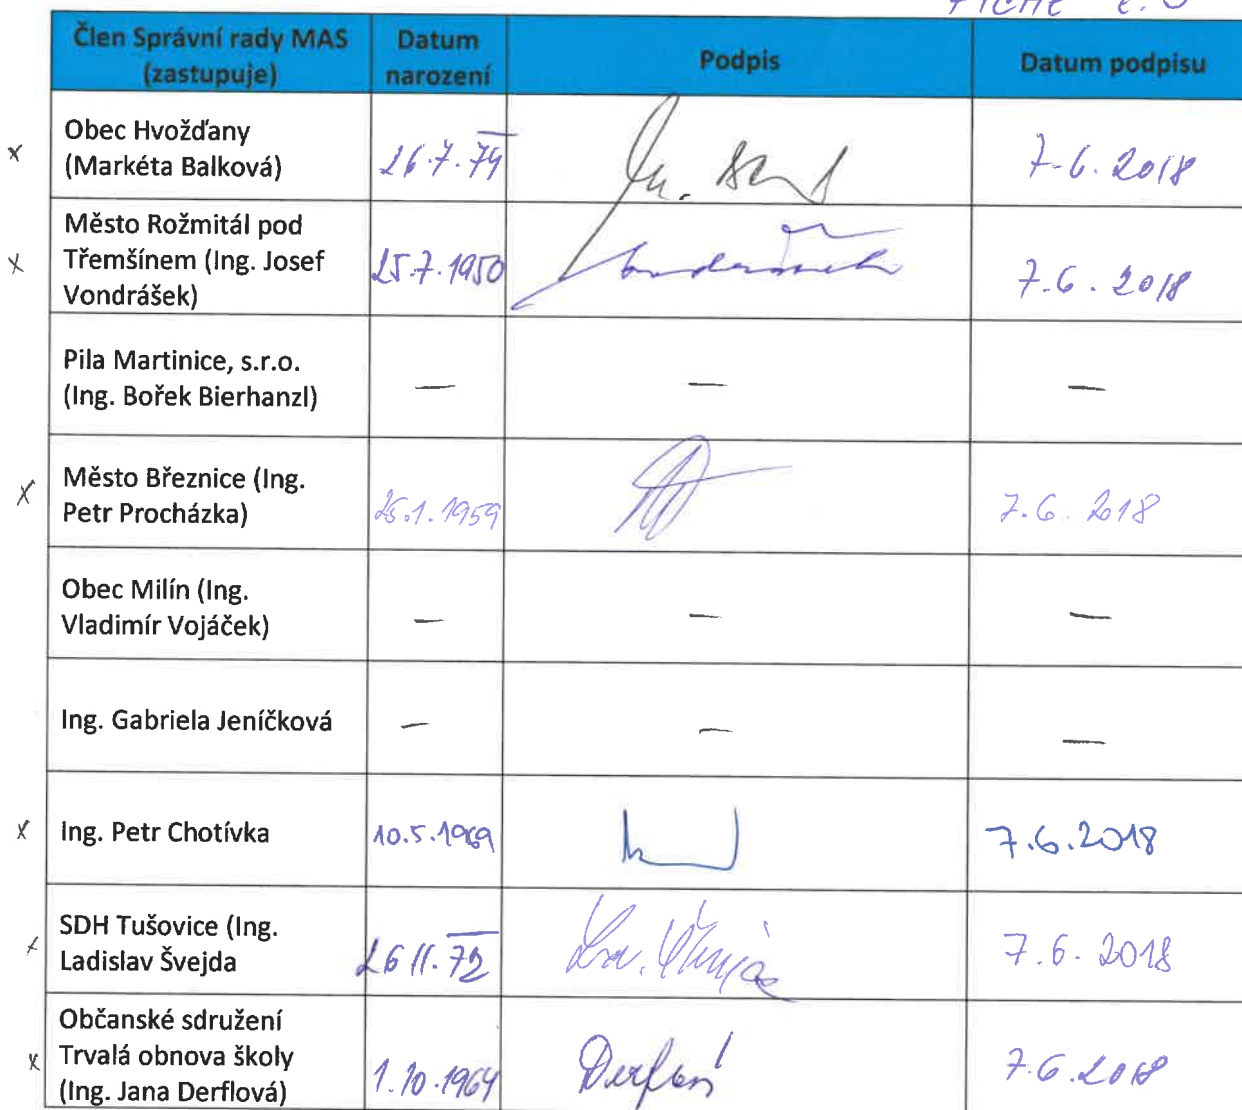 Člen Správní rady MAS (zastupuje) Datum narození Podpis Datum podpisu
x Obec Hvožďany (Markéta Balková) 26.7.74 7.6.2018
x Město Rožmitál pod Třemšínem (Ing. Josef Vondrášek) 25.7.1950 7.6.2018
Pila Martinice, s.r.o. (Ing. Bořek Bierhanzl) — — —
x Město Březnice (Ing. Petr Procházka) 25.1.1959 7.6.2018
Obec Milín (Ing. Vladimír Vojáček) — — —
Ing. Gabriela Jeníčková — — —
x Ing. Petr Chotívka 10.5.1969 7.6.2018
x SDH Tušovice (Ing. Ladislav Švejda 26 11.72 7.6.2018
x Občanské sdružení Trvalá obnova školy (Ing. Jana Derflová) 1.10.1964 7.6.2018